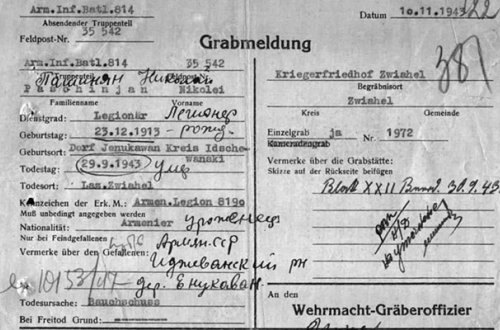 Arm.Inf.Batl.814
Absendender Truppenteil
Feldpost-Nr. 35 542
Datum 10.11.1943
Grabmeldung
Arm.Inf.Batl.814 35 542
Truppenteil Feldpost-Nr.
Пашинян Николай
Paschinjan Nikolei
Familienname Vorname
Dienstgrad: Legionär Легионер
Geburtstag: 23.12.1913 - рожд.
Geburtsort: Dorf Jenukawan Kreis Idsche-
wanski
Todestag: 29.9.1943 ум
Todesort: Laz.Zwiahel
Kennzeichen der Erk.M.: Armen.Legion 8190
Muß unbedingt angegeben werden
Nationalität: Armenier уроженец
Nur bei Feindgefallenen
Армян. ССР
Vermerke über den Gefallenen:
Иджеванский рн
дер. Енукаван.
Todesursache: Bauchschuss
Bei Freitod Grund:
381
Kriegerfriedhof Zwiahel
Begräbnisort
Zwiahel
Kreis Gemeinde
Einzelgrab ja Nr. 1972
Kameradengrab
Vermerke über die Grabstätte:
Skizze auf der Rückseite beifügen
Block XXII 30.9.43
An den
Wehrmacht-Gräberoffizier